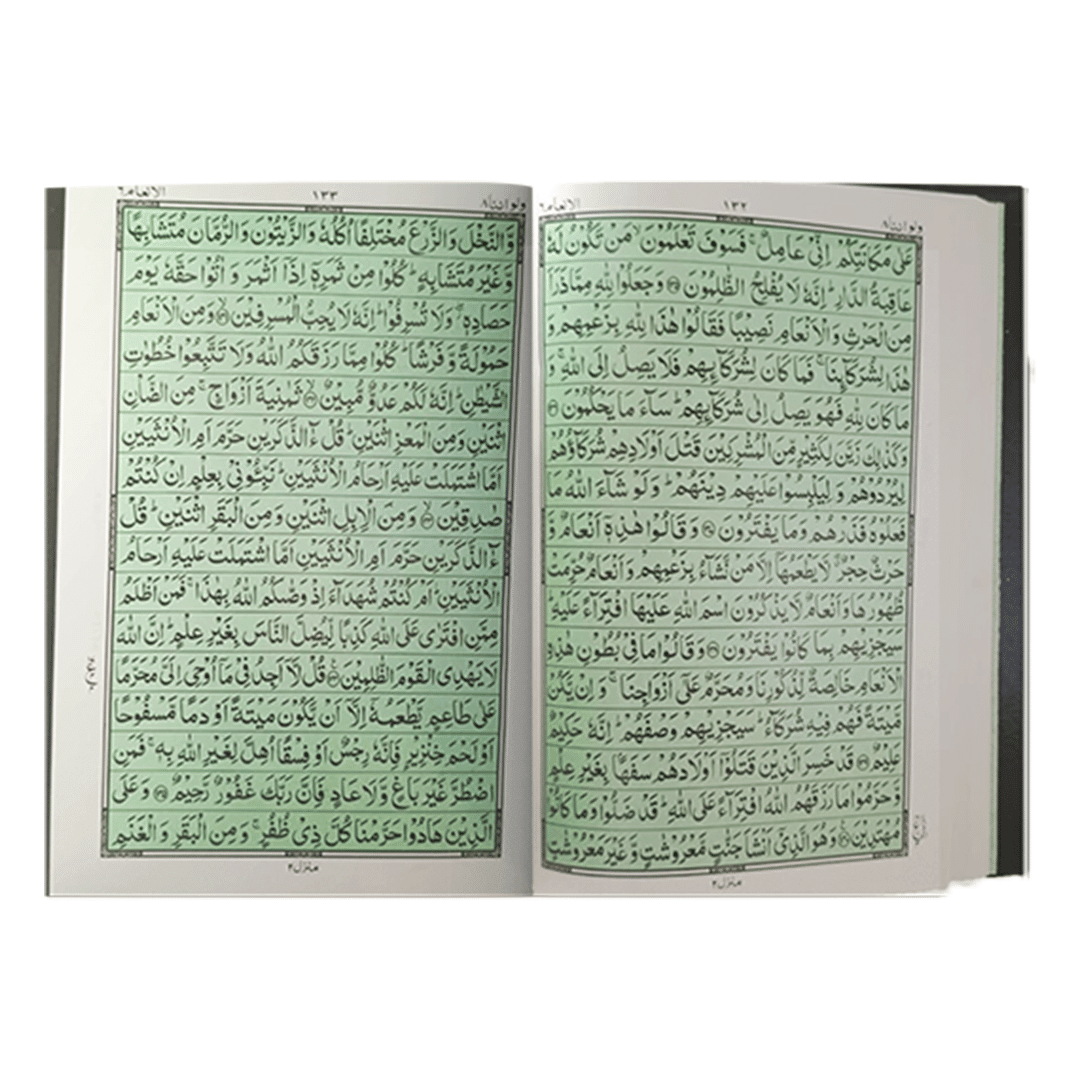 ولو اننا۸ ۱۳۲ الانعام۶
عَلٰی مَکَانَتِکُمْ اِنِّیْ عَامِلٌ ۚ فَسَوْفَ تَعْلَمُوْنَ ۙ مَنْ تَکُوْنُ لَهٗ
عَاقِبَةُ الدَّارِ ؕ اِنَّهٗ لَا یُفْلِحُ الظّٰلِمُوْنَ ﴿۱۳۵﴾ وَجَعَلُوْا لِلّٰهِ مِمَّا ذَرَاَ
مِنَ الْحَرْثِ وَالْاَنْعَامِ نَصِیْبًا فَقَالُوْا هٰذَا لِلّٰهِ بِزَعْمِهِمْ وَ
هٰذَا لِشُرَکَآىِٕنَا ۚ فَمَا کَانَ لِشُرَکَآىِٕهِمْ فَلَا یَصِلُ اِلَی اللّٰهِ ۚ وَ
مَا کَانَ لِلّٰهِ فَهُوَ یَصِلُ اِلٰی شُرَکَآىِٕهِمْ ؕ سَآءَ مَا یَحْکُمُوْنَ ﴿۱۳۶﴾
وَکَذٰلِكَ زَیَّنَ لِکَثِیْرٍ مِّنَ الْمُشْرِکِیْنَ قَتْلَ اَوْلَادِهِمْ شُرَکَآؤُهُمْ
لِیُرْدُوْهُمْ وَلِیَلْبِسُوْا عَلَیْهِمْ دِیْنَهُمْ ؕ وَلَوْ شَآءَ اللّٰهُ مَا
فَعَلُوْهُ فَذَرْهُمْ وَمَا یَفْتَرُوْنَ ﴿۱۳۷﴾ وَقَالُوْا هٰذِهٖۤ اَنْعَامٌ وَّ
حَرْثٌ حِجْرٌ ۖ لَّا یَطْعَمُهَاۤ اِلَّا مَنْ نَّشَآءُ بِزَعْمِهِمْ وَاَنْعَامٌ حُرِّمَتْ
ظُهُوْرُهَا وَاَنْعَامٌ لَّا یَذْکُرُوْنَ اسْمَ اللّٰهِ عَلَیْهَا افْتِرَآءً عَلَیْهِ ؕ
سَیَجْزِیْهِمْ بِمَا کَانُوْا یَفْتَرُوْنَ ﴿۱۳۸﴾ وَقَالُوْا مَا فِیْ بُطُوْنِ هٰذِهِ
الْاَنْعَامِ خَالِصَةٌ لِّذُکُوْرِنَا وَمُحَرَّمٌ عَلٰۤی اَزْوَاجِنَا ۚ وَاِنْ یَّکُنْ
مَّیْتَةً فَهُمْ فِیْهِ شُرَکَآءُ ؕ سَیَجْزِیْهِمْ وَصْفَهُمْ ؕ اِنَّهٗ حَکِیْمٌ
عَلِیْمٌ ﴿۱۳۹﴾ قَدْ خَسِرَ الَّذِیْنَ قَتَلُوْۤا اَوْلَادَهُمْ سَفَهًۢا بِغَیْرِ عِلْمٍ
وَّحَرَّمُوْا مَا رَزَقَهُمُ اللّٰهُ افْتِرَآءً عَلَی اللّٰهِ ؕ قَدْ ضَلُّوْا وَمَا کَانُوْا
مُهْتَدِیْنَ ﴿۱۴۰﴾ وَهُوَ الَّذِیْۤ اَنْشَاَ جَنّٰتٍ مَّعْرُوْشٰتٍ وَّغَیْرَ مَعْرُوْشٰتٍ
منزل۲
ولو اننا۸ ۱۳۳ الانعام۶
وَّالنَّخْلَ وَالزَّرْعَ مُخْتَلِفًا اُکُلُهٗ وَالزَّیْتُوْنَ وَالرُّمَّانَ مُتَشَابِهًا
وَّغَیْرَ مُتَشَابِهٍ ؕ کُلُوْا مِنْ ثَمَرِهٖۤ اِذَاۤ اَثْمَرَ وَاٰتُوْا حَقَّهٗ یَوْمَ
حَصَادِهٖ ۖ وَلَا تُسْرِفُوْا ؕ اِنَّهٗ لَا یُحِبُّ الْمُسْرِفِیْنَ ﴿۱۴۱﴾ وَمِنَ الْاَنْعَامِ
حَمُوْلَةً وَّفَرْشًا ؕ کُلُوْا مِمَّا رَزَقَکُمُ اللّٰهُ وَلَا تَتَّبِعُوْا خُطُوٰتِ
الشَّیْطٰنِ ؕ اِنَّهٗ لَکُمْ عَدُوٌّ مُّبِیْنٌ ﴿۱۴۲﴾ ثَمٰنِیَةَ اَزْوَاجٍ ۚ مِنَ الضَّاْنِ
اثْنَیْنِ وَمِنَ الْمَعْزِ اثْنَیْنِ ؕ قُلْ ءٰٓالذَّکَرَیْنِ حَرَّمَ اَمِ الْاُنْثَیَیْنِ
اَمَّا اشْتَمَلَتْ عَلَیْهِ اَرْحَامُ الْاُنْثَیَیْنِ ؕ نَبِّـُٔوْنِیْ بِعِلْمٍ اِنْ کُنْتُمْ
صٰدِقِیْنَ ﴿۱۴۳﴾ وَمِنَ الْاِبِلِ اثْنَیْنِ وَمِنَ الْبَقَرِ اثْنَیْنِ ؕ قُلْ
ءٰٓالذَّکَرَیْنِ حَرَّمَ اَمِ الْاُنْثَیَیْنِ اَمَّا اشْتَمَلَتْ عَلَیْهِ اَرْحَامُ
الْاُنْثَیَیْنِ ؕ اَمْ کُنْتُمْ شُهَدَآءَ اِذْ وَصّٰکُمُ اللّٰهُ بِهٰذَا ۚ فَمَنْ اَظْلَمُ
مِمَّنِ افْتَرٰی عَلَی اللّٰهِ کَذِبًا لِّیُضِلَّ النَّاسَ بِغَیْرِ عِلْمٍ ؕ اِنَّ اللّٰهَ
لَا یَهْدِی الْقَوْمَ الظّٰلِمِیْنَ ﴿۱۴۴﴾ قُلْ لَّاۤ اَجِدُ فِیْ مَاۤ اُوْحِیَ اِلَیَّ مُحَرَّمًا
عَلٰی طَاعِمٍ یَّطْعَمُهٗۤ اِلَّاۤ اَنْ یَّکُوْنَ مَیْتَةً اَوْ دَمًا مَّسْفُوْحًا
اَوْ لَحْمَ خِنْزِیْرٍ فَاِنَّهٗ رِجْسٌ اَوْ فِسْقًا اُهِلَّ لِغَیْرِ اللّٰهِ بِهٖ ۚ فَمَنِ
اضْطُرَّ غَیْرَ بَاغٍ وَّلَا عَادٍ فَاِنَّ رَبَّكَ غَفُوْرٌ رَّحِیْمٌ ﴿۱۴۵﴾ وَعَلَی
الَّذِیْنَ هَادُوْا حَرَّمْنَا کُلَّ ذِیْ ظُفُرٍ ۚ وَمِنَ الْبَقَرِ وَالْغَنَمِ
منزل۲